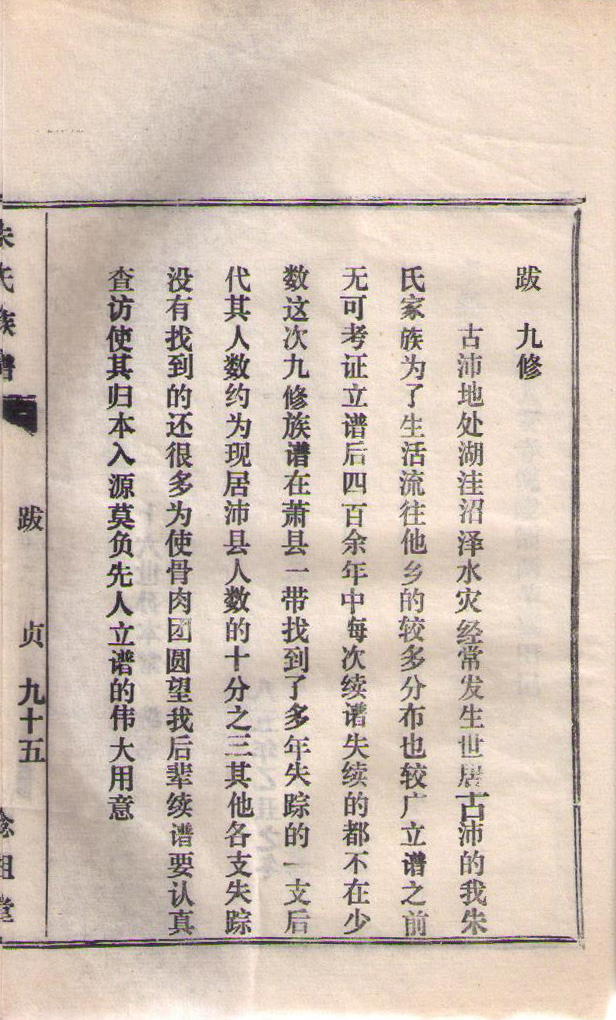 跋 九修
古沛地处湖洼沼泽水灾经常发生世居古沛的我朱
氏家族为了生活流往他乡的较多分布也较广立谱之前
无可考证立谱后四百余年中每次续谱失续的都不在少
数这次九修族谱在萧县一带找到了多年失踪的一支后
代其人数约为现居沛县人数的十分之三其他各支失踪
没有找到的还很多为使骨肉团圆望我后辈续谱要认真
查访使其归本入源莫负先人立谱的伟大用意
朱氏族谱 跋 贞 九十五 念祖堂